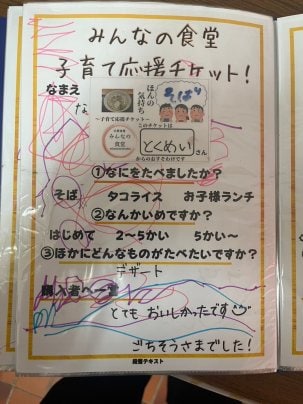 みんなの食堂
子育て応援チケット!
なまえ
な
ほんの
気持ち
~子育て応援チケット~
このチケットは
みんなの
食堂
とくめい さん
からのおすそわけです
①なにをたべましたか?
そば タコライス お子様ランチ
②なんかいめですか?
はじめて 2〜5かい 5かい〜
③ほかにどんなものがたべたいですか?
デザート
購入者へ一言
とても おいしかったです
ごちそうさまでした!
段落テキスト